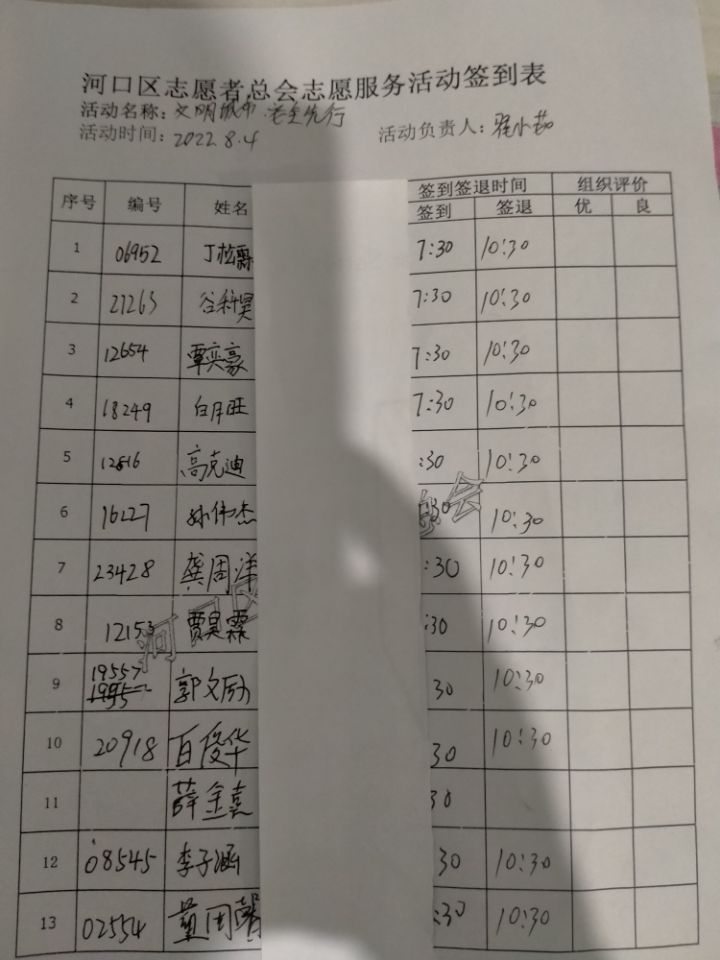 河口区志愿者总会志愿服务活动签到表
活动名称：文明城市 安全先行
活动时间：2022.8.4 活动负责人：
序号 编号 姓名 签到签退时间 组织评价
签到 签退 优 良
1 06952 丁松霖 7:30 10:30
2 21263 谷科昊 7:30 10:30
3 12654 覃奕豪 7:30 10:30
4 18249 白月旺 7:30 10:30
5 12816 高克迪 :30 10:30
6 16227 孙伟杰 :30 10:30
7 23428 龚周洋 :30 10:30
8 12153 贾昊霖 :30 10:30
9 19557 郭文励 30 10:30
10 20918 百俊华 30 10:30
11 薛金喜 30
12 08545 李子涵 30 10:30
13 02554 董周馨 :30 10:30
河口区
总会